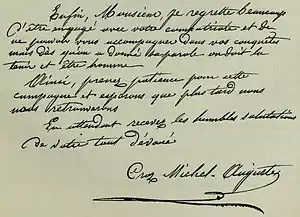 Enfin, Monsieur, je regrette beaucoup
d'être engagé avec votre compatriote et de
ne pouvoir vous accompagner dans vos conquêtes
mais dès qu'on a donné sa parole on doit la
tenir et être homme
Ainsi, prenez patience pour cette
campagne et espérons que plus tard nous
nous retrouverons
En attendant recevez les humbles salutations
de votre tout dévoué
Croz Michel-Auguste